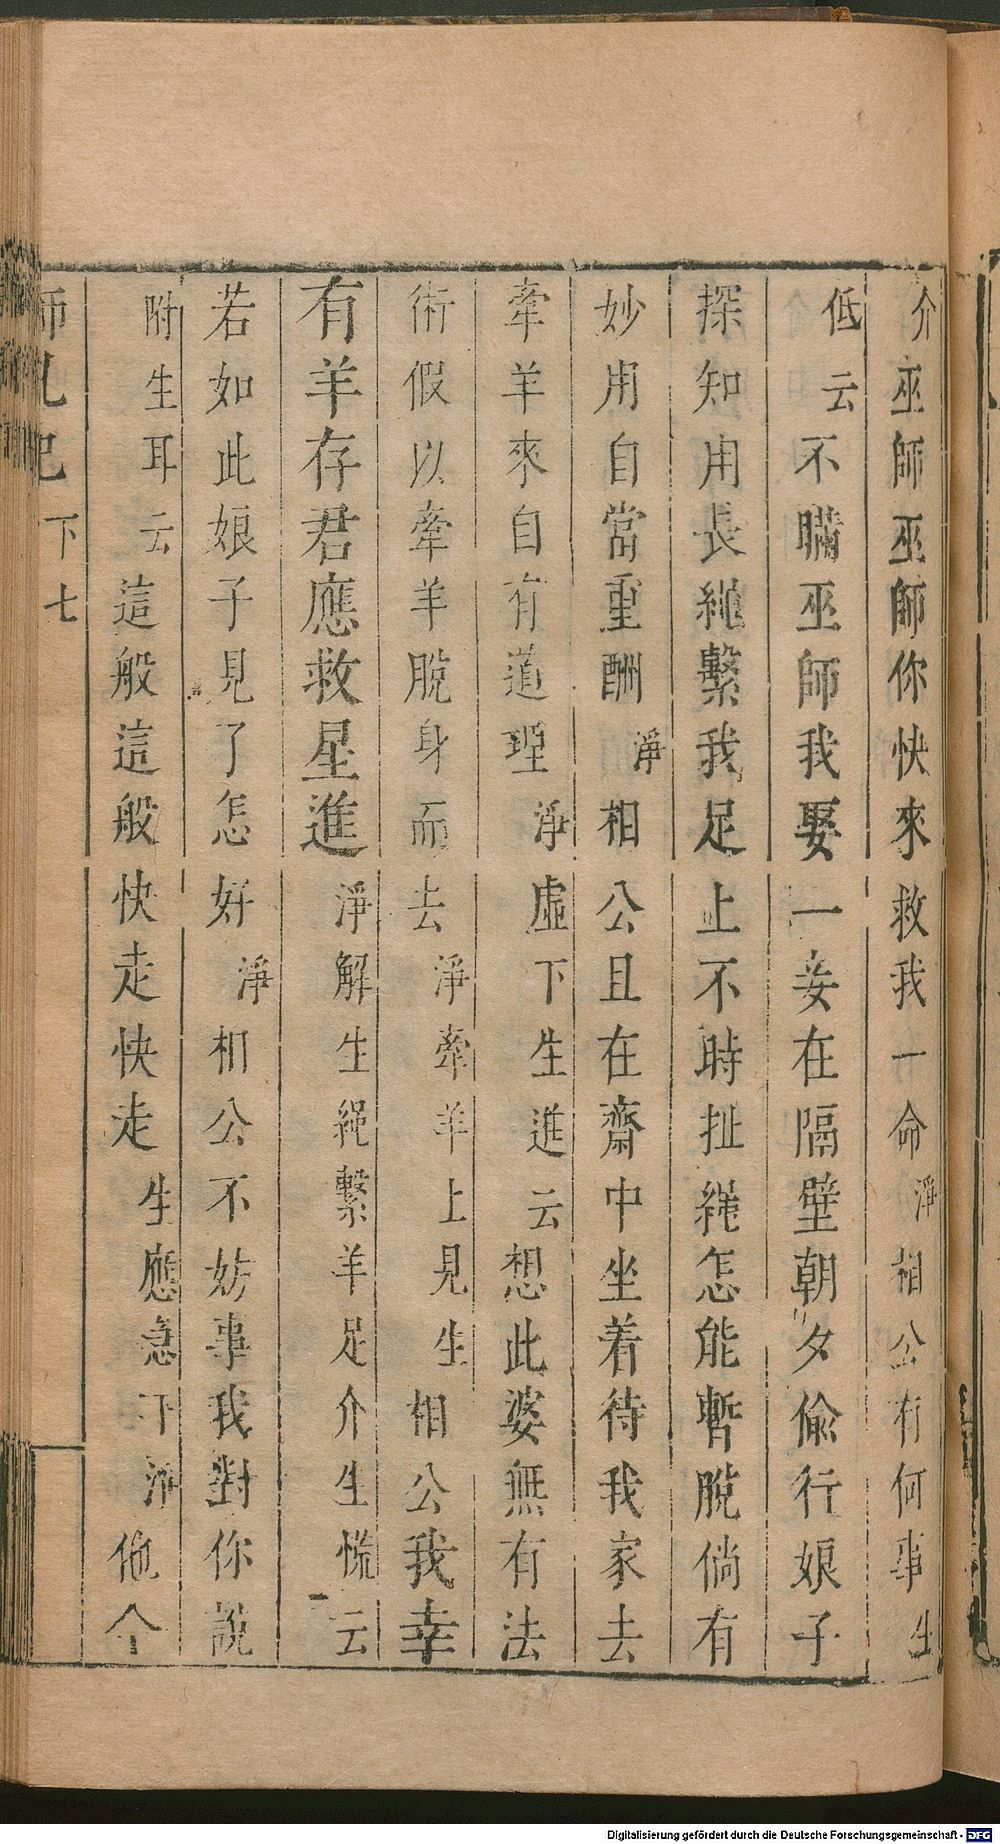 介巫師巫師你快來救我一命淨相公有何事生
低云不瞞巫師我娶一妾在隔壁朝夕偷行娘子
探知用長繩繫我足上不時扯繩怎能暫脫倘有
妙用自當重酬淨相公且在齋中坐着待我家去
牽羊來自有道理淨虛下生進云想此婆無有法
術假以牽羊脫身而去淨牽羊上見生相公我幸
有羊存君應救星進淨解生繩繫羊足介生慌云
若如此娘子見了怎好淨相公不妨事我對你說
附生耳云這般這般快走快走生應急下淨他个
師孔記下七
Digitalisierung gefördert durch die Deutsche Forschungsgemeinschaft - DFG